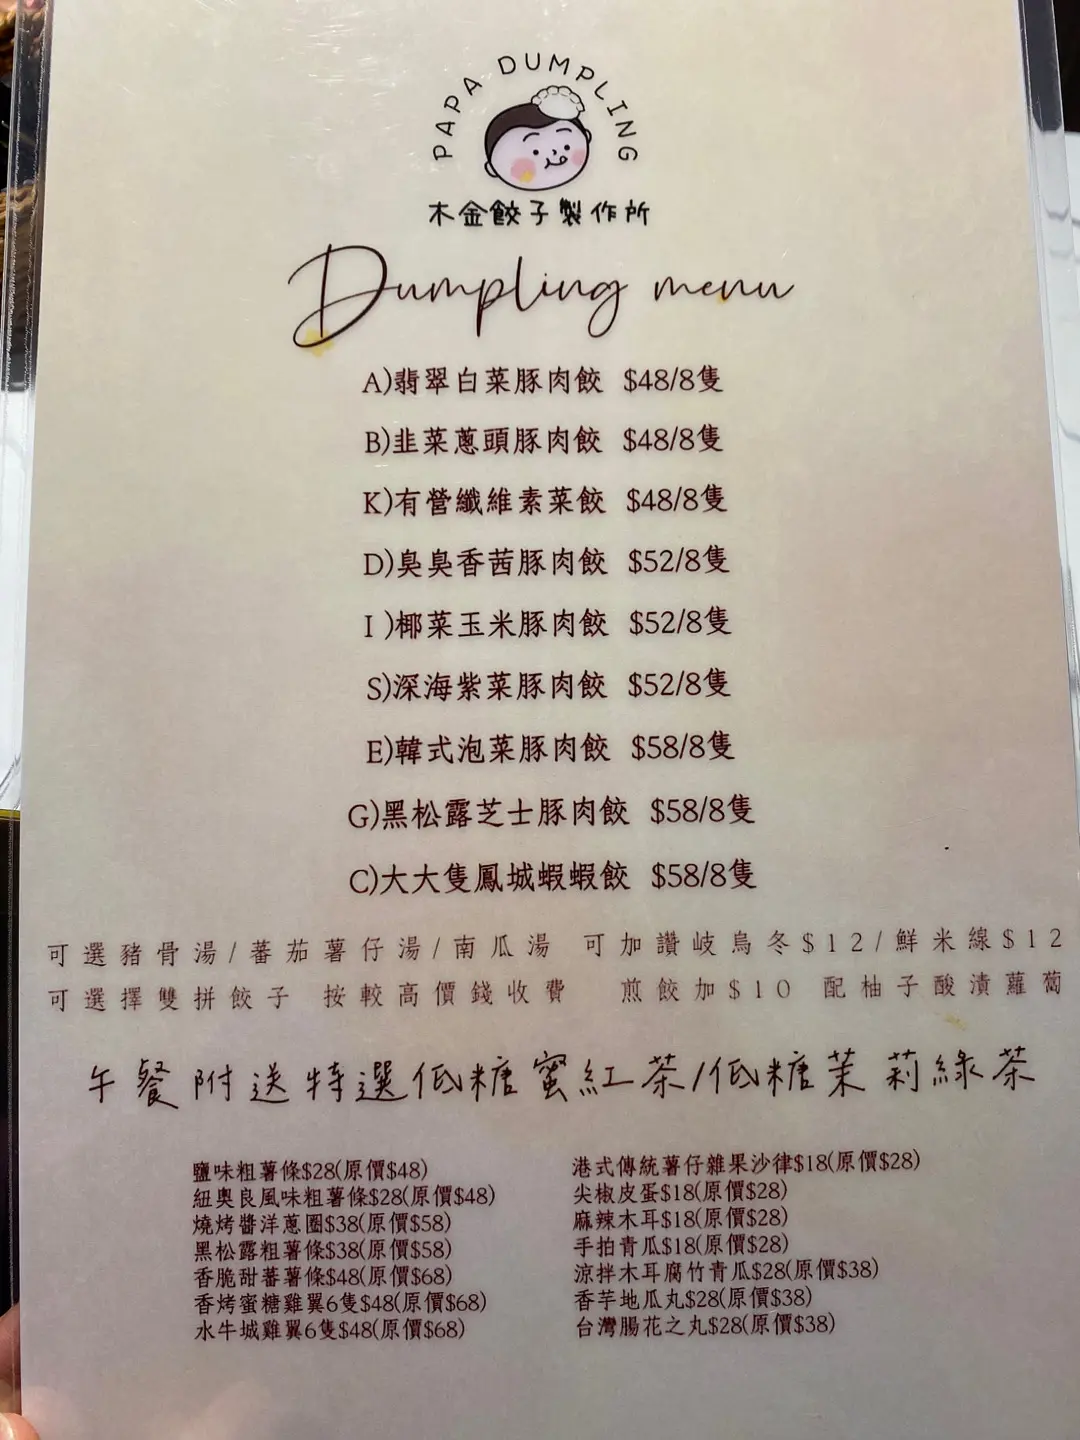 PAPA DUMPLING
木金餃子製作所
Dumpling menu
A)翡翠白菜豚肉餃 $48/8隻
B)韭菜蔥頭豚肉餃 $48/8隻
K)有營纖維素菜餃 $48/8隻
D)臭臭香茜豚肉餃 $52/8隻
I )椰菜玉米豚肉餃 $52/8隻
S)深海紫菜豚肉餃 $52/8隻
E)韓式泡菜豚肉餃 $58/8隻
G)黑松露芝士豚肉餃 $58/8隻
C)大大隻鳳城蝦蝦餃 $58/8隻
可選豬骨湯/蕃茄薯仔湯/南瓜湯 可加讚岐烏冬$12/鮮米線$12
可選擇雙拼餃子 按較高價錢收費 煎餃加$10 配柚子酸漬蘿蔔
午餐附送特選低糖蜜紅茶/低糖茉莉綠茶
鹽味粗薯條$28(原價$48)
紐奧良風味粗薯條$28(原價$48)
燒烤醬洋蔥圈$38(原價$58)
黑松露粗薯條$38(原價$58)
香脆甜蕃薯條$48(原價$68)
香烤蜜糖雞翼6隻$48(原價$68)
水牛城雞翼6隻$48(原價$68)
港式傳統薯仔雜果沙律$18(原價$28)
尖椒皮蛋$18(原價$28)
麻辣木耳$18(原價$28)
手拍青瓜$18(原價$28)
涼拌木耳腐竹青瓜$28(原價$38)
香芋地瓜丸$28(原價$38)
台灣腸花之丸$28(原價$38)